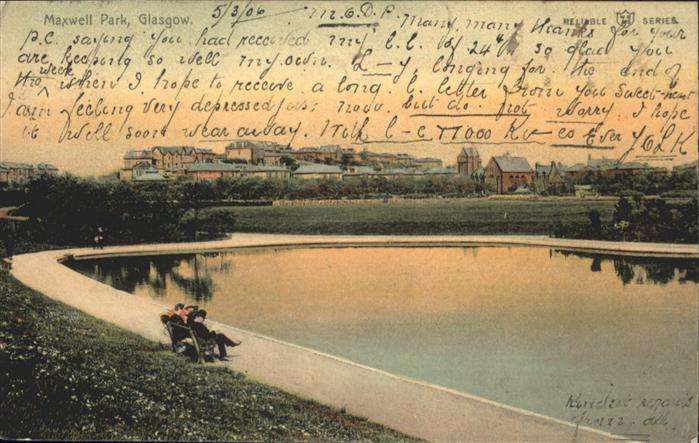 Maxwell Park, Glasgow.
5/3/06 M.O.D.P.
RELIABLE SERIES.
Many, many thanks for your
P.C. saying you had received my l.l. of 24th so glad you
are keeping so well my own. L—y longing for the end of
the week is when I hope to receive a long l. letter from you Sweet-heart
I am feeling very depressed just now. but do not worry I hope
it will soon wear away. With l—e 77000 Ks—es Ever
Kindest regards
from all.